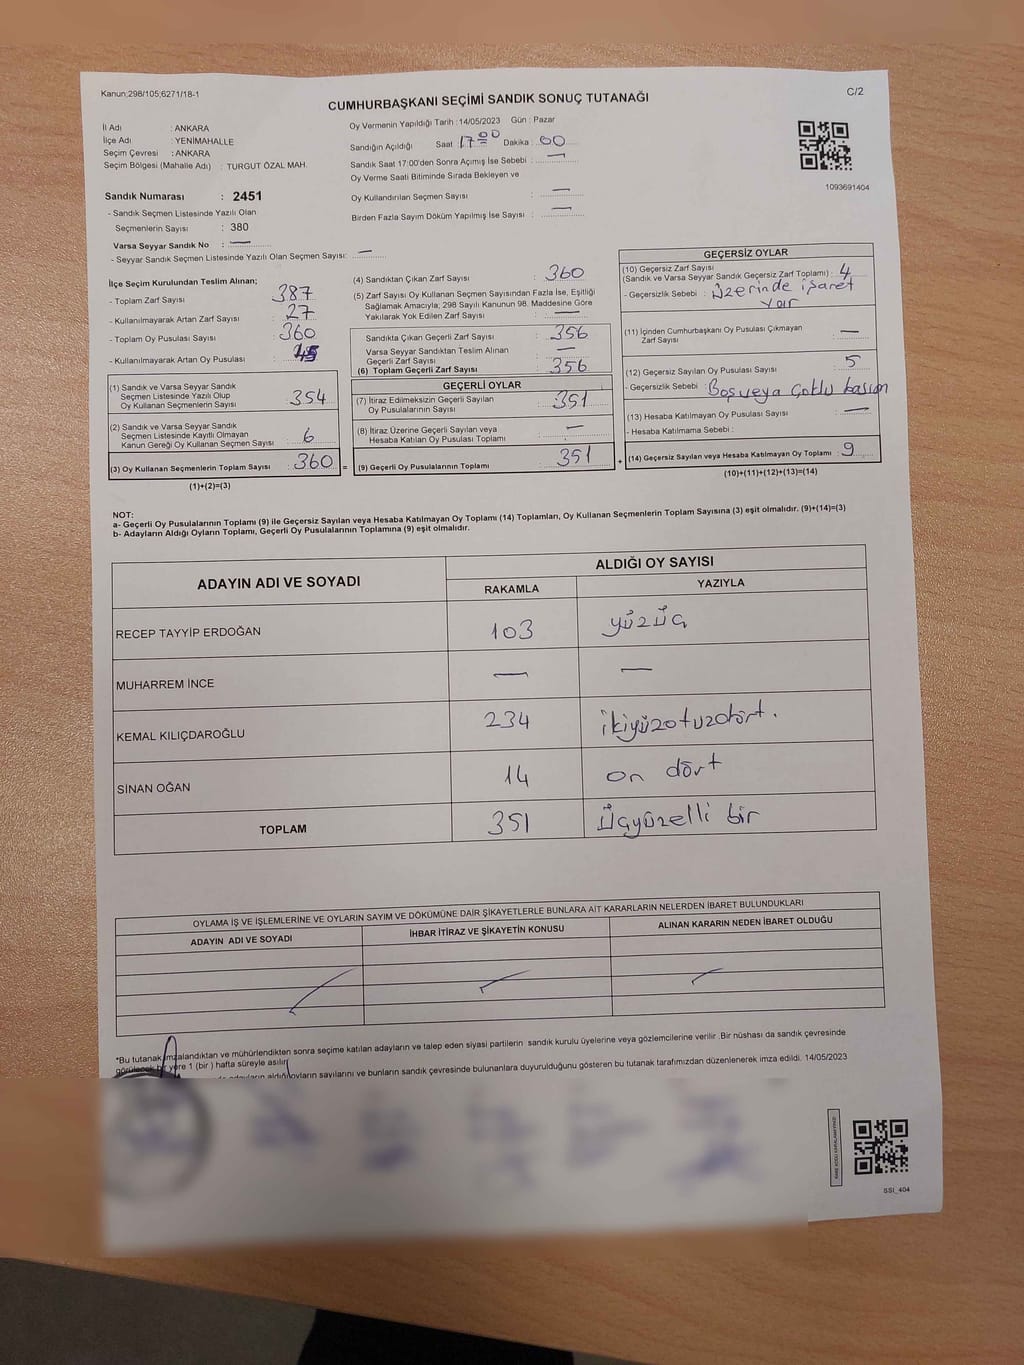 Kanun;298/105;6271/18-1
C/2
CUMHURBAŞKANI SEÇİMİ SANDIK SONUÇ TUTANAĞI
İl Adı : ANKARA
İlçe Adı : YENİMAHALLE
Seçim Çevresi : ANKARA
Seçim Bölgesi (Mahalle Adı) : TURGUT ÖZAL MAH.
Oy Vermenin Yapıldığı Tarih : 14/05/2023 Gün : Pazar
Sandığın Açıldığı Saat 17:00 Dakika : 00
Sandık Saat 17:00'den Sonra Açımış İse Sebebi : —
Oy Verme Saati Bitiminde Sırada Bekleyen ve
Oy Kullandırılan Seçmen Sayısı : —
Birden Fazla Sayım Döküm Yapılmış İse Sayısı : —
1093691404
Sandık Numarası : 2451
- Sandık Seçmen Listesinde Yazılı Olan
Seçmenlerin Sayısı : 380
Varsa Seyyar Sandık No : —
- Seyyar Sandık Seçmen Listesinde Yazılı Olan Seçmen Sayısı: —
İlçe Seçim Kurulundan Teslim Alınan;
- Toplam Zarf Sayısı : 387
- Kullanılmayarak Artan Zarf Sayısı : 27
- Toplam Oy Pusulası Sayısı : 360
- Kullanılmayarak Artan Oy Pusulası :
(1) Sandık ve Varsa Seyyar Sandık
Seçmen Listesinde Yazılı Olup
Oy Kullanan Seçmenlerin Sayısı : 354
(2) Sandık ve Varsa Seyyar Sandık
Seçmen Listesinde Kayıtlı Olmayan
Kanun Gereği Oy Kullanan Seçmen Sayısı : 6
(3) Oy Kullanan Seçmenlerin Toplam Sayısı : 360 =
(1)+(2)=(3)
(4) Sandıktan Çıkan Zarf Sayısı : 360
(5) Zarf Sayısı Oy Kullanan Seçmen Sayısından Fazla İse, Eşitliği
Sağlamak Amacıyla; 298 Sayılı Kanunun 98. Maddesine Göre
Yakılarak Yok Edilen Zarf Sayısı : —
Sandıkta Çıkan Geçerli Zarf Sayısı : 356
Varsa Seyyar Sandıktan Teslim Alınan
Geçerli Zarf Sayısı : —
(6) Toplam Geçerli Zarf Sayısı : 356
GEÇERLİ OYLAR
(7) İtiraz Edilmeksizin Geçerli Sayılan
Oy Pusulalarının Sayısı : 351
(8) İtiraz Üzerine Geçerli Sayılan veya
Hesaba Katılan Oy Pusulası Toplamı : —
(9) Geçerli Oy Pusulalarının Toplamı : 351 +
GEÇERSİZ OYLAR
(10) Geçersiz Zarf Sayısı
(Sandık ve Varsa Seyyar Sandık Geçersiz Zarf Toplamı) : 4
- Geçersizlik Sebebi : Üzerinde işaret
var
(11) İçinden Cumhurbaşkanı Oy Pusulası Çıkmayan
Zarf Sayısı : —
(12) Geçersiz Sayılan Oy Pusulası Sayısı : 5
- Geçersizlik Sebebi : Boş veya çoklu basım
(13) Hesaba Katılmayan Oy Pusulası Sayısı : —
- Hesaba Katılmama Sebebi :
(14) Geçersiz Sayılan veya Hesaba Katılmayan Oy Toplamı : 9
(10)+(11)+(12)+(13)=(14)
NOT:
a- Geçerli Oy Pusulalarının Toplamı (9) ile Geçersiz Sayılan veya Hesaba Katılmayan Oy Toplamı (14) Toplamları, Oy Kullanan Seçmenlerin Toplam Sayısına (3) eşit olmalıdır. (9)+(14)=(3)
b- Adayların Aldığı Oyların Toplamı, Geçerli Oy Pusulalarının Toplamına (9) eşit olmalıdır.
ADAYIN ADI VE SOYADI
ALDIĞI OY SAYISI
RAKAMLA YAZIYLA
RECEP TAYYİP ERDOĞAN 103 yüzüç
MUHARREM İNCE — —
KEMAL KILIÇDAROĞLU 234 ikiyüzotuzdört.
SİNAN OĞAN 14 on dört
TOPLAM 351 Üçyüzelli bir
OYLAMA İŞ VE İŞLEMLERİNE VE OYLARIN SAYIM VE DÖKÜMÜNE DAİR ŞİKAYETLERLE BUNLARA AİT KARARLARIN NELERDEN İBARET BULUNDUKLARI
ADAYIN ADI VE SOYADI İHBAR İTİRAZ VE ŞİKAYETİN KONUSU ALINAN KARARIN NEDEN İBARET OLDUĞU
*Bu tutanak imzalandıktan ve mühürlendikten sonra seçime katılan adayların ve talep eden siyasi partilerin sandık kurulu üyelerine veya gözlemcilerine verilir .Bir nüshası da sandık çevresinde
görülecek bir yere 1 (bir ) hafta süreyle asılır.
aldığı oyların sayılarını ve bunların sandık çevresinde bulunanlara duyurulduğunu gösteren bu tutanak tarafımızdan düzenlenerek imza edildi. 14/05/2023
SSI_404